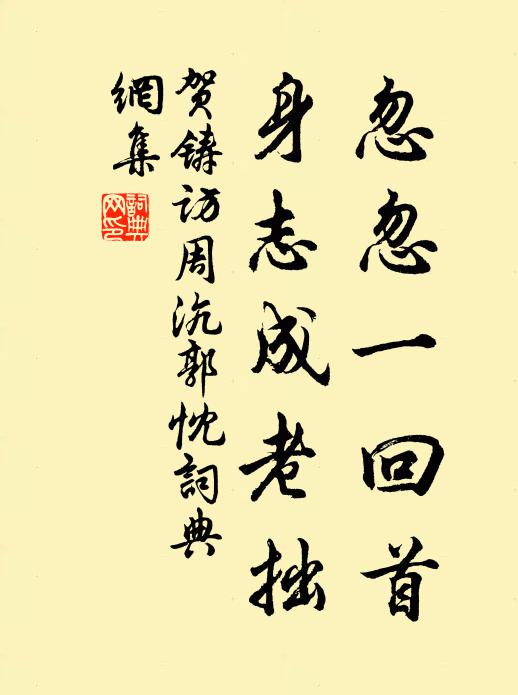 忽忽一回首
身志成老拙
贺铸访周沇郭忱詞典
網集
詞典
网印